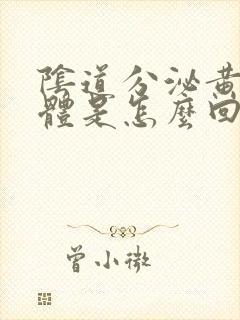 陰道分泌黃
體是怎麼回
曾小微